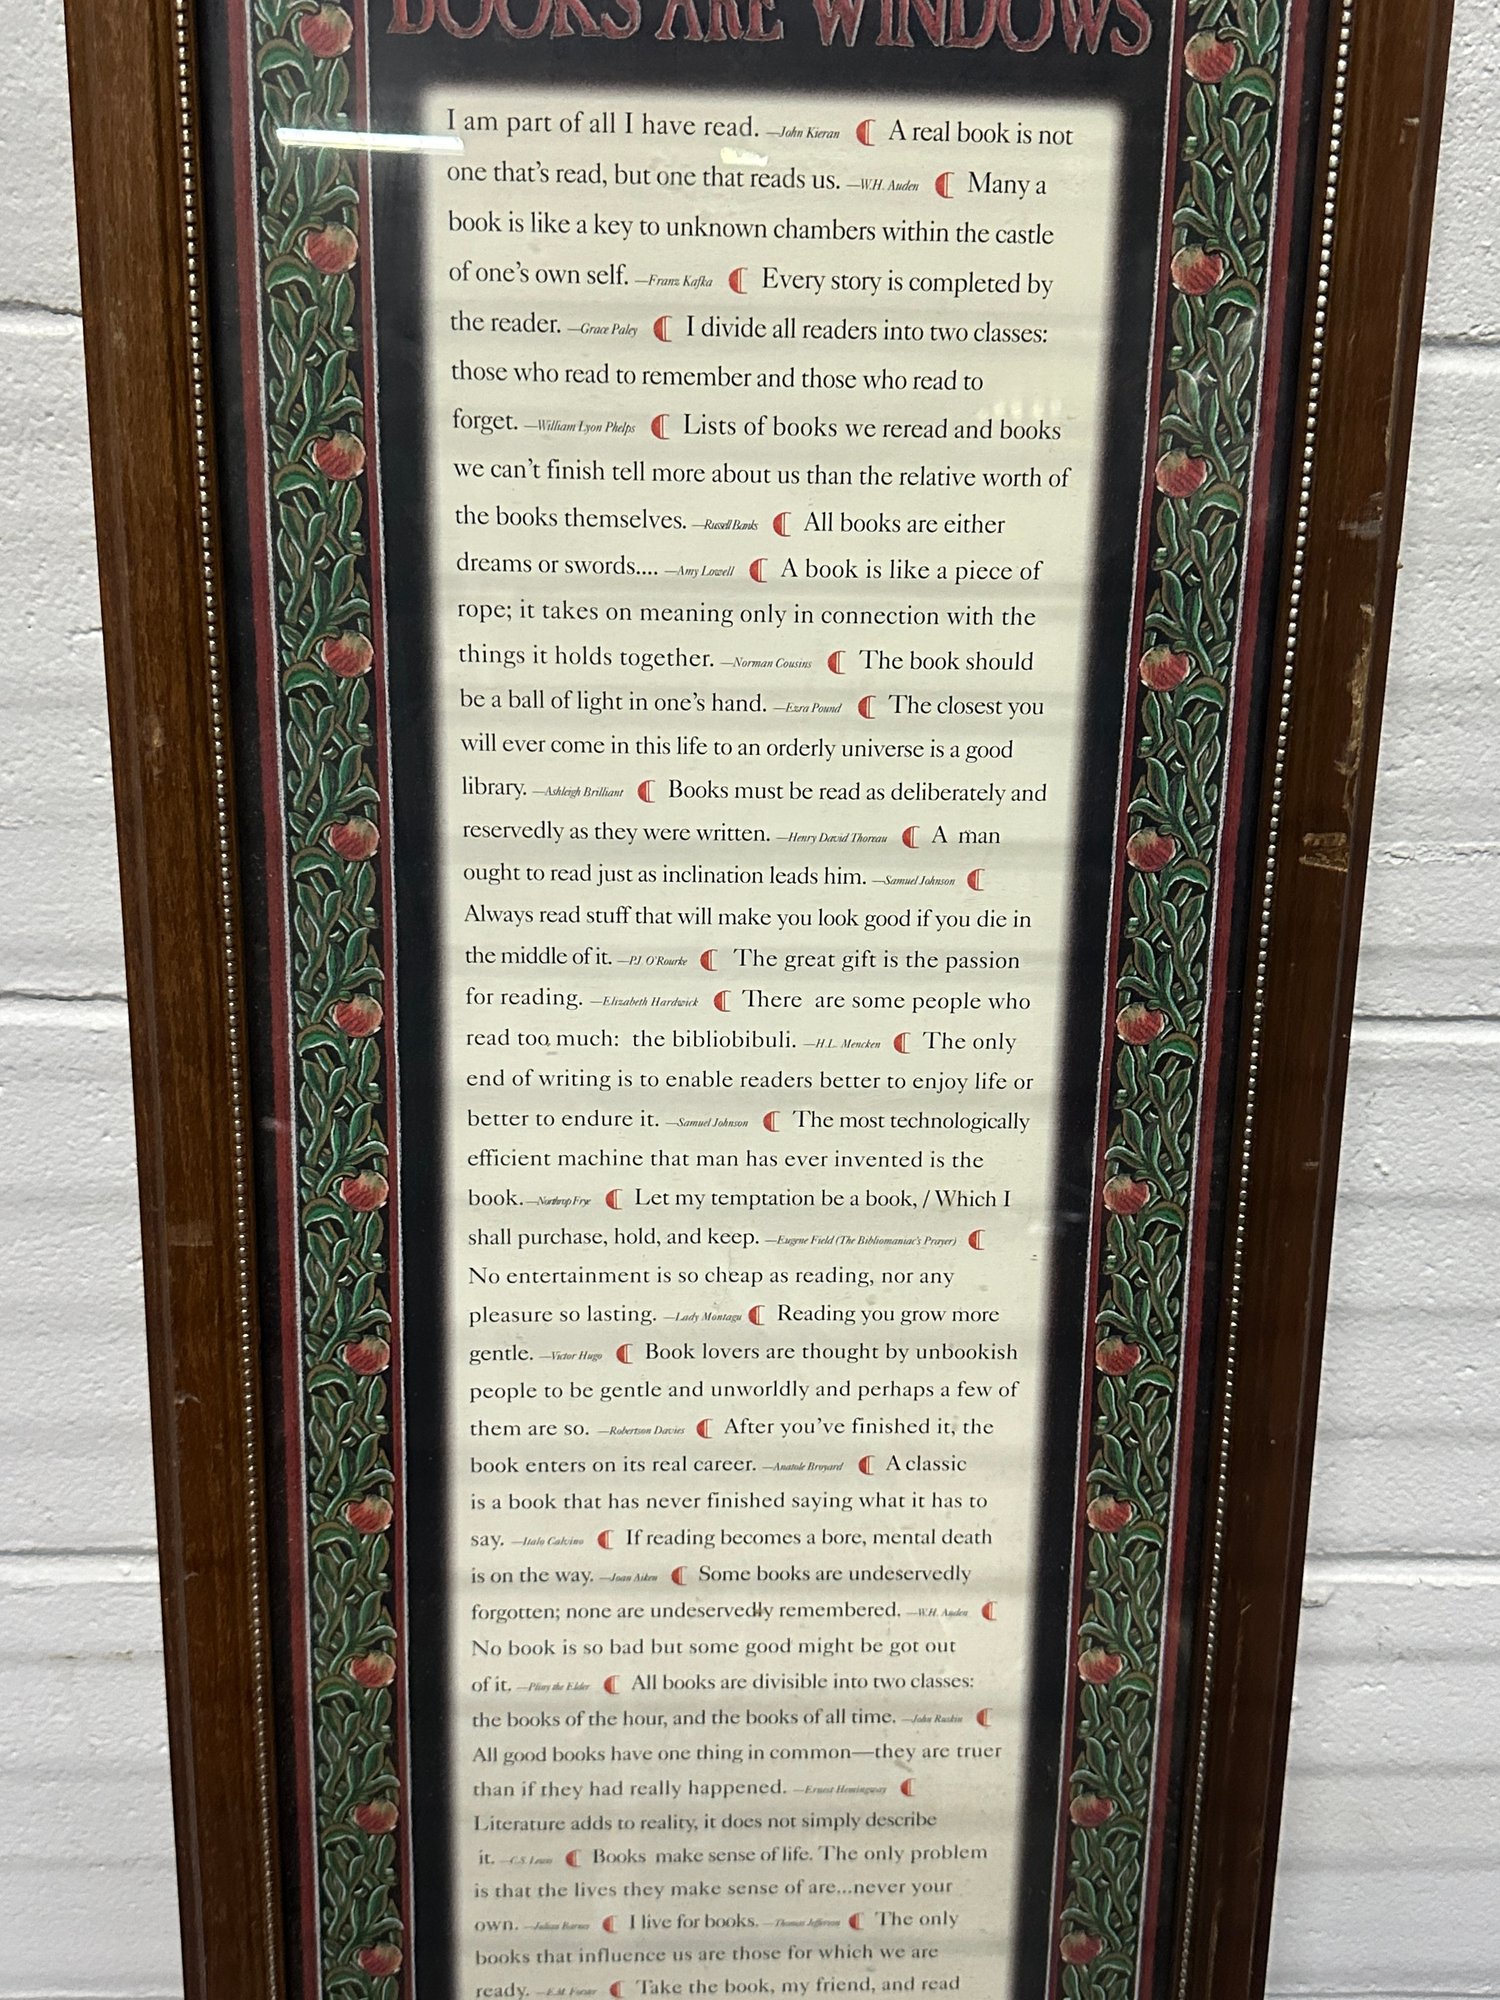 BOOKS ARE WINDOWS
I am part of all I have read. —John Kieran ¶ A real book is not
one that's read, but one that reads us. —W.H. Auden ¶ Many a
book is like a key to unknown chambers within the castle
of one's own self. —Franz Kafka ¶ Every story is completed by
the reader. —Grace Paley ¶ I divide all readers into two classes:
those who read to remember and those who read to
forget. —William Lyon Phelps ¶ Lists of books we reread and books
we can't finish tell more about us than the relative worth of
the books themselves. —Russell Banks ¶ All books are either
dreams or swords.... —Amy Lowell ¶ A book is like a piece of
rope; it takes on meaning only in connection with the
things it holds together. —Norman Cousins ¶ The book should
be a ball of light in one's hand. —Ezra Pound ¶ The closest you
will ever come in this life to an orderly universe is a good
library. —Ashleigh Brilliant ¶ Books must be read as deliberately and
reservedly as they were written. —Henry David Thoreau ¶ A man
ought to read just as inclination leads him. —Samuel Johnson ¶
Always read stuff that will make you look good if you die in
the middle of it. —P.J. O'Rourke ¶ The great gift is the passion
for reading. —Elizabeth Hardwick ¶ There are some people who
read too much: the bibliobibuli. —H.L. Mencken ¶ The only
end of writing is to enable readers better to enjoy life or
better to endure it. —Samuel Johnson ¶ The most technologically
efficient machine that man has ever invented is the
book. —Northrop Frye ¶ Let my temptation be a book, / Which I
shall purchase, hold, and keep. —Eugene Field (The Bibliomaniac's Prayer) ¶
No entertainment is so cheap as reading, nor any
pleasure so lasting. —Lady Montagu ¶ Reading you grow more
gentle. —Victor Hugo ¶ Book lovers are thought by unbookish
people to be gentle and unworldly and perhaps a few of
them are so. —Robertson Davies ¶ After you've finished it, the
book enters on its real career. —Anatole Broyard ¶ A classic
is a book that has never finished saying what it has to
say. —Italo Calvino ¶ If reading becomes a bore, mental death
is on the way. —Joan Aiken ¶ Some books are undeservedly
forgotten; none are undeservedly remembered. —W.H. Auden ¶
No book is so bad but some good might be got out
of it. —Pliny the Elder ¶ All books are divisible into two classes:
the books of the hour, and the books of all time. —John Ruskin ¶
All good books have one thing in common—they are truer
than if they had really happened. —Ernest Hemingway ¶
Literature adds to reality, it does not simply describe
it. —C.S. Lewis ¶ Books make sense of life. The only problem
is that the lives they make sense of are...never your
own. —Julian Barnes ¶ I live for books. —Thomas Jefferson ¶ The only
books that influence us are those for which we are
ready. —E.M. Forster ¶ Take the book, my friend, and read